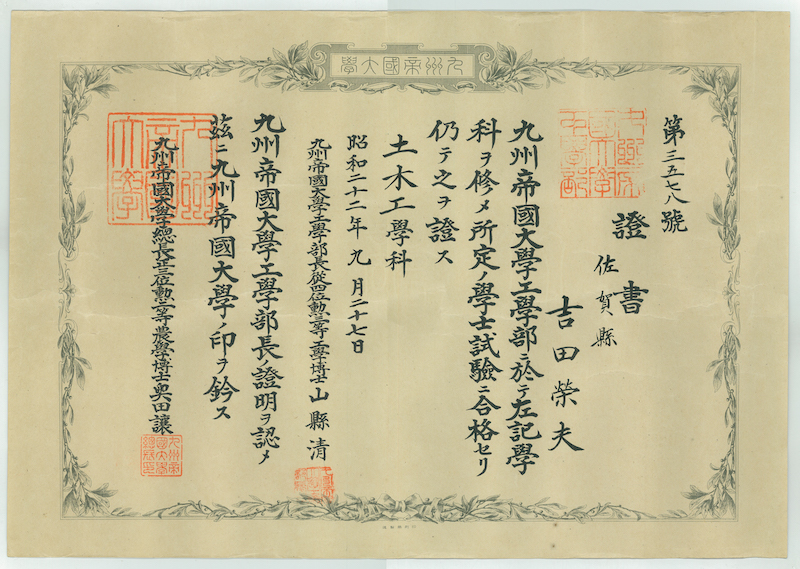 學大國帝州九
第三五七八號
證書
佐賀縣
吉田榮夫
九州帝國大學工學部ニ於テ左記學
科ヲ修メ所定ノ學士試驗ニ合格セリ
仍テ之ヲ證ス
土木工學科
昭和二十二年九月二十七日
九州帝國大學工學部長從四位勳三等工學博士山縣清
九州帝國大學工學部長ノ證明ヲ認メ
茲ニ九州帝國大學ノ印ヲ鈐ス
九州帝國大學總長正三位勳二等農學博士奧田讓